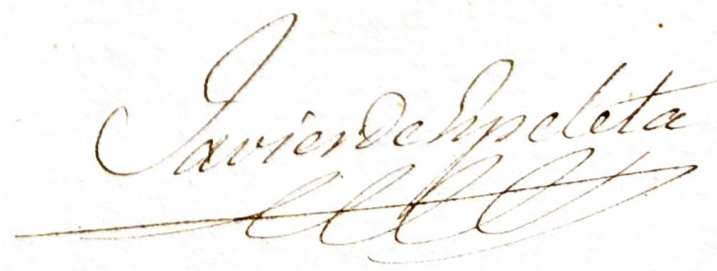 Javier de Espeleta